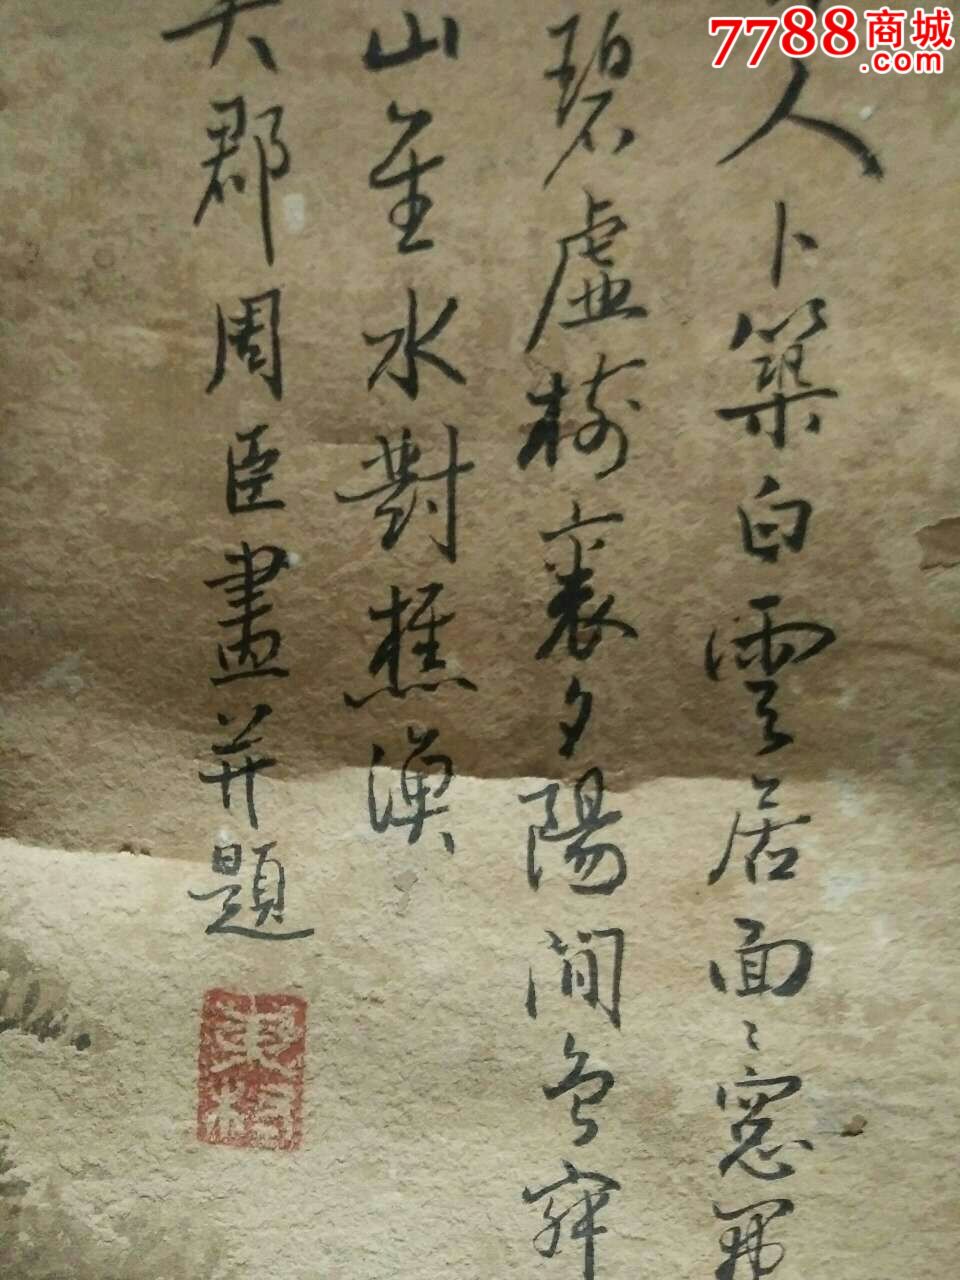 7788商城
.com
人卜築白雲居面〻窓開
碧虛樹裏夕陽間
山至水對樵漁
郡周臣畫并題
東村